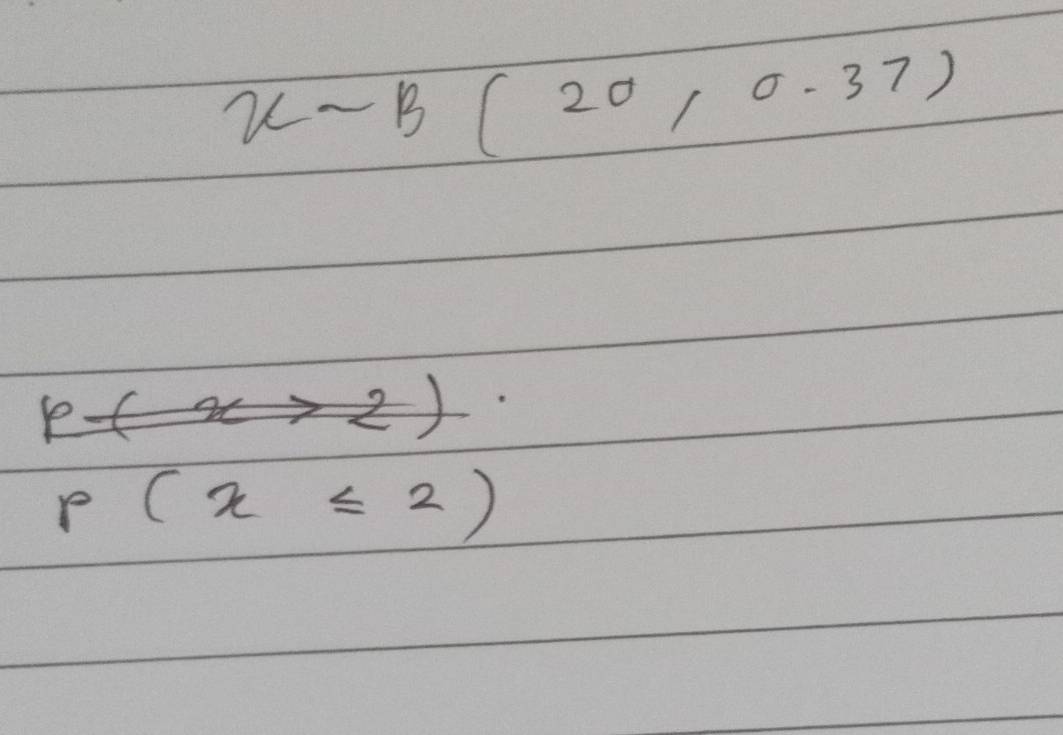 x ~ B ( 20 , 0.37 )
P ( x > 2 ) .
P ( x ≤ 2 )